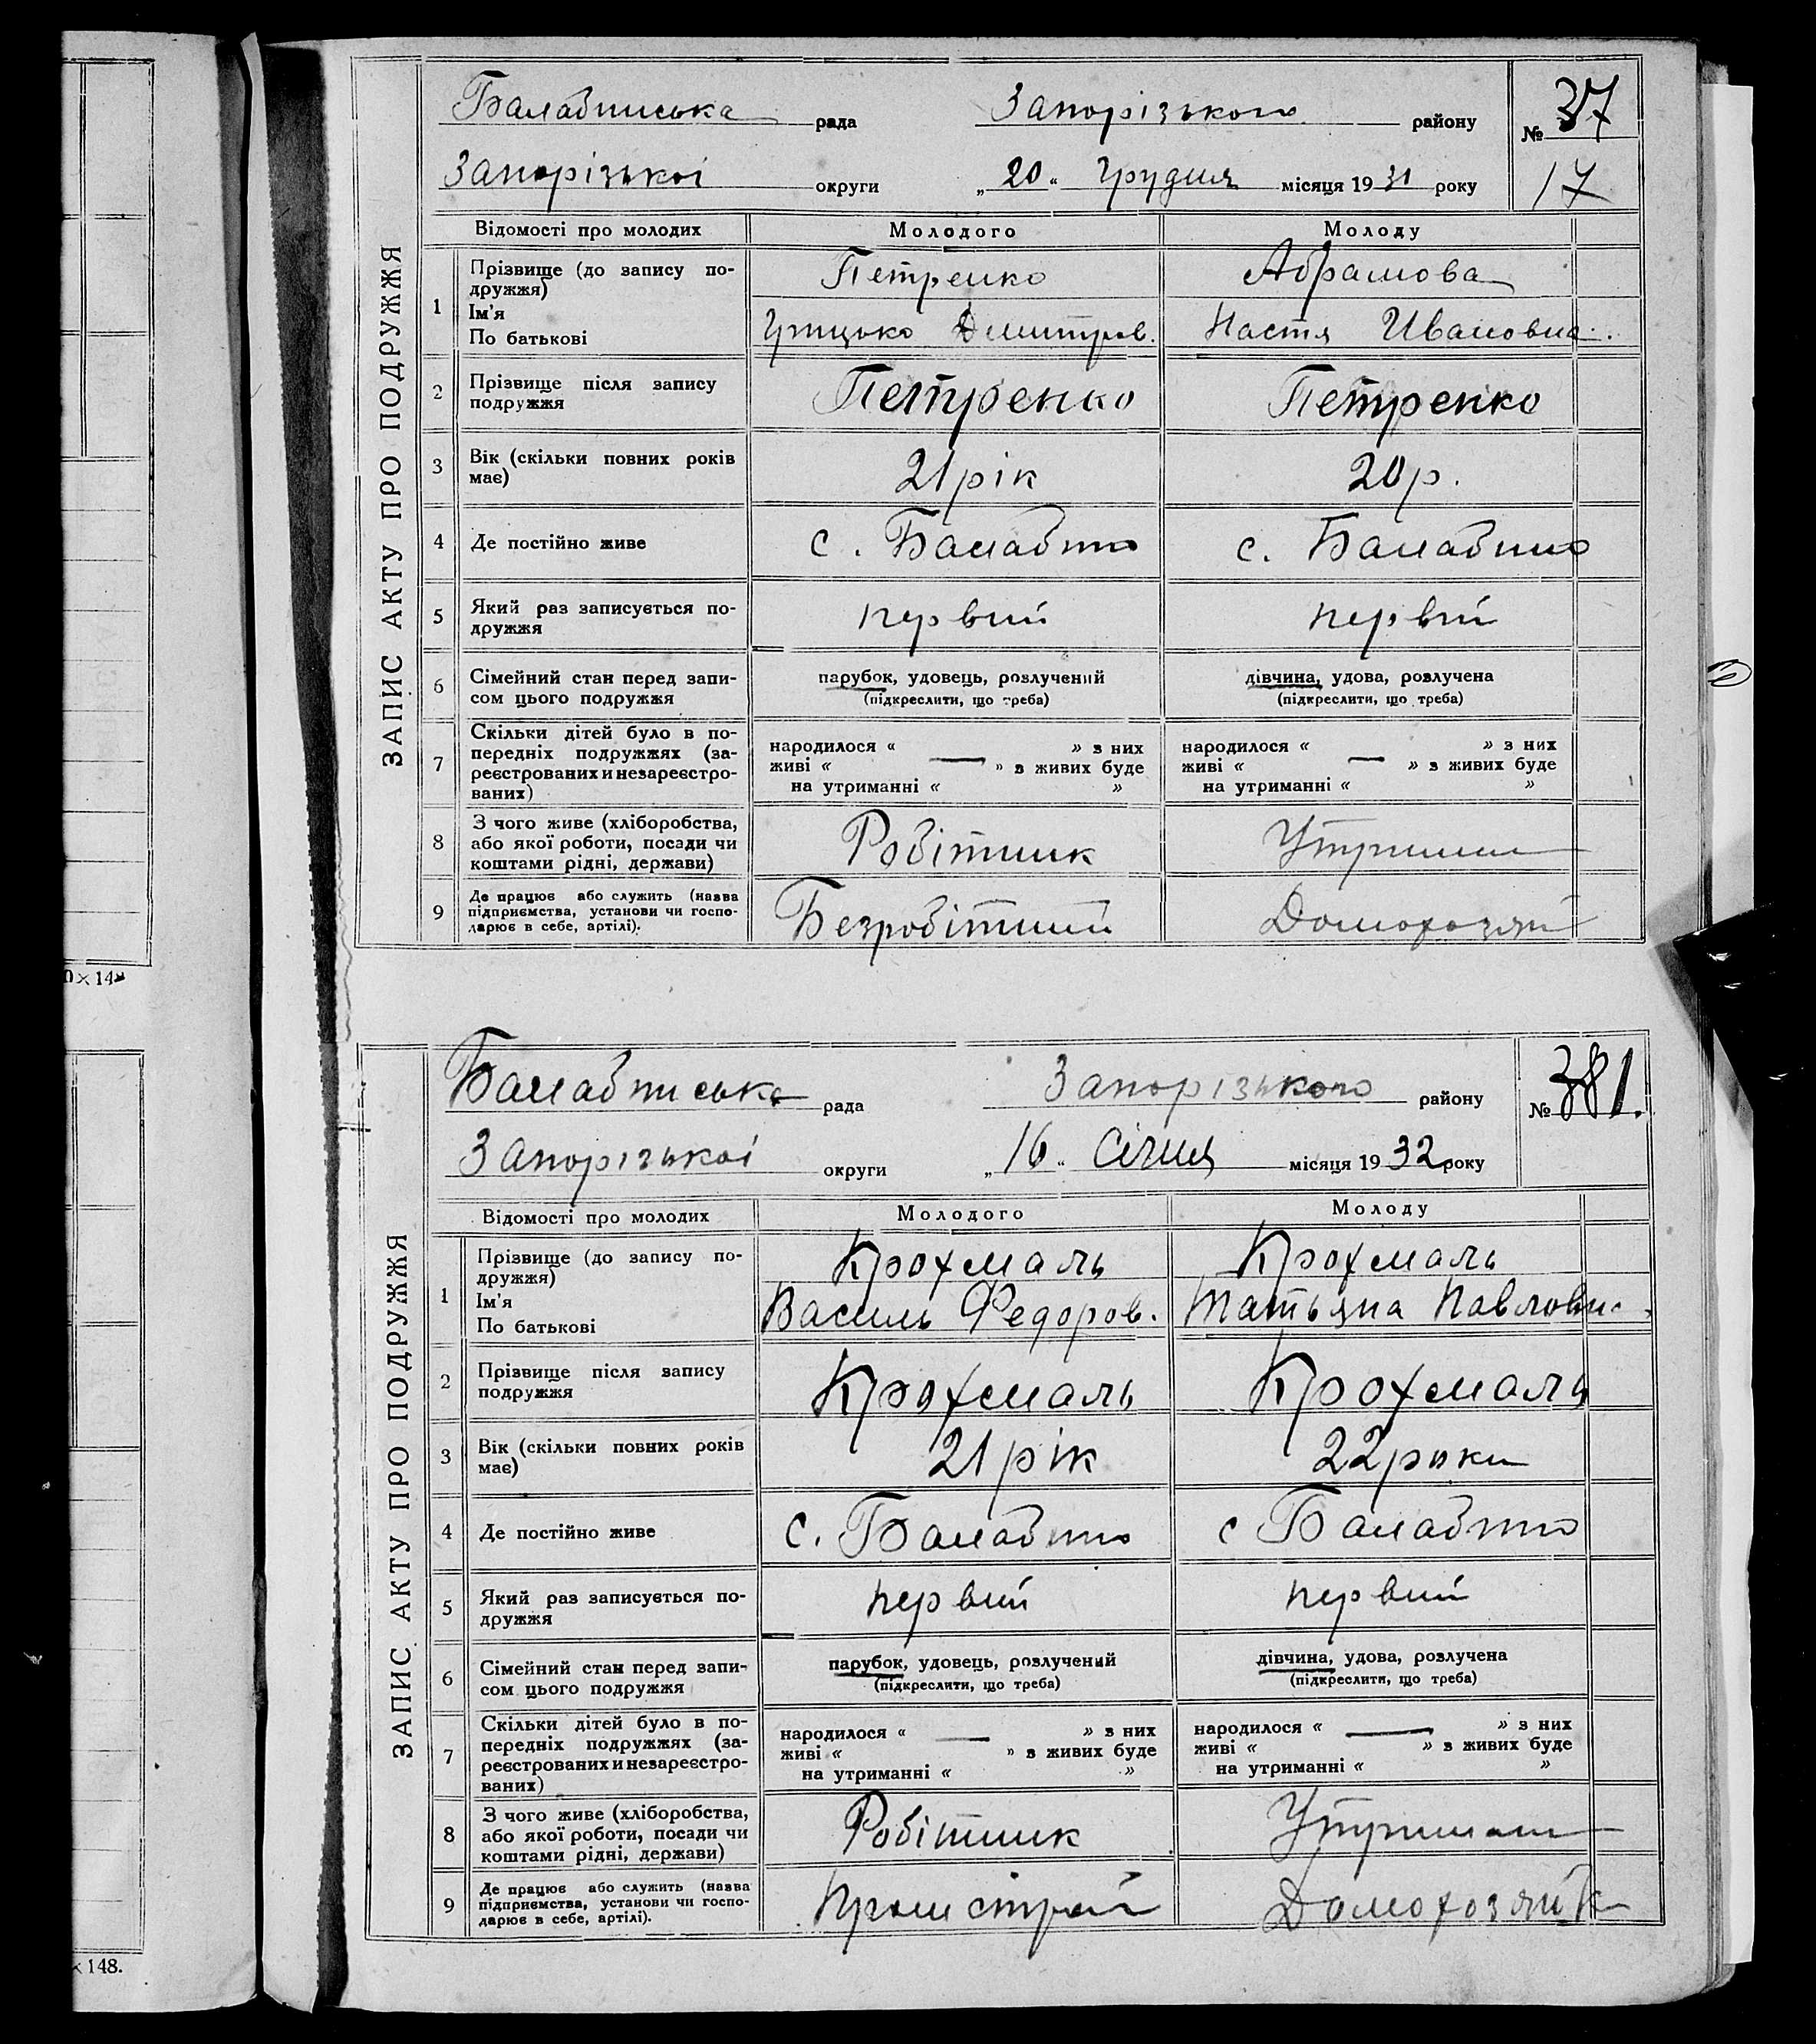 ЗАПИС АКТУ ПРО ПОДРУЖЖЯ
Балабинська рада Запорізького району № 37
Запорізької округи „20“ Грудня місяця 1931 року 17
Відомості про молодих Молодого Молоду
1 Прізвище (до запису по-
дружжя) Петренко Абрамова
Ім'я
По батькові Грицько Дмитров. Настя Ивановна.
2 Прізвище після запису
подружжя Петренко Петренко
3 Вік (скільки повних років
має) 21 рік 20 р.
4 Де постійно живе с. Балабино с. Балабино
5 Який раз записується по-
дружжя первий первій
6 Сімейний стан перед запи-
сом цього подружжя парубок, удовець, розлучений дівчина, удова, розлучена
(підкреслити, що треба) (підкреслити, що треба)
7 Скільки дітей було в по-
передніх подружжях (за-
реєстрованих и незареєстро-
ваних)
народилося « — » з них народилося « — » з них
живі « » з живих буде живі « » з живих буде
на утриманні « » на утриманні « »
8 З чого живе (хліборобства,
або якої роботи, посади чи
коштами рідні, держави) Робітник Утриман
9 Де працює або служить (назва
підприємства, установи чи госпо-
дарює в себе, артілі). Безробітний Домохозяй
0×148
ЗАПИС АКТУ ПРО ПОДРУЖЖЯ
Балабинська рада Запорізького району № 381.
Запорізької округи „16“ Січня місяця 1932 року
Відомості про молодих Молодого Молоду
1 Прізвище (до запису по-
дружжя) Крохмаль Крохмаль
Ім'я
По батькові Василь Федоров. Татьяна Павловн.
2 Прізвище після запису
подружжя Крохмаль Крохмаль
3 Вік (скільки повних років
має) 21 рік 22 роки
4 Де постійно живе с. Балабино с Балабино
5 Який раз записується по-
дружжя первий первий
6 Сімейний стан перед запи-
сом цього подружжя парубок, удовець, розлучений дівчина, удова, розлучена
(підкреслити, що треба) (підкреслити, що треба)
7 Скільки дітей було в по-
передніх подружжях (за-
реєстрованих и незареєстро-
ваних)
народилося « — » з них народилося « — » з них
живі « » з живих буде живі « » з живих буде
на утриманні « » на утриманні « »
8 З чого живе (хліборобства,
або якої роботи, посади чи
коштами рідні, держави) Робітник Утриман
9 Де працює або служить (назва
підприємства, установи чи госпо-
дарює в себе, артілі). Промстрой Домохозяйк
×148.